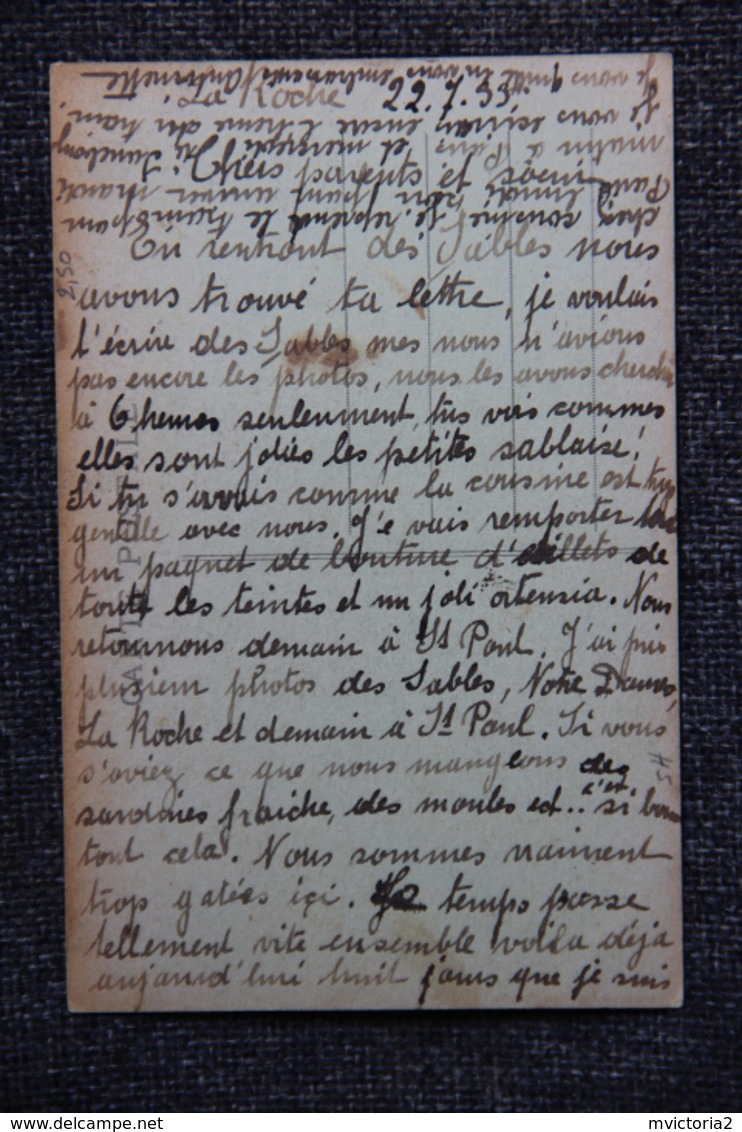 La Roche 22.7.33
Chers parents et sœur
En rentrant des Sables nous
avons trouvé ta lettre, je voulais
t'écrire des Sables mes nous n'avions
pas encore les photos, nous les avons cherché
à 6 heures seuleument, tus vois commes
elles sont joliés les petites sablaise!
Si tu s'avais comme la cousine est trop
gentille avec nous. J'e vais remporter
un paquet de bouture d'œillets de
toute les teintes et un joli ortensia. Nous
retournons demain à St Paul. J'ai pris
plusieur photos des Sables, Notre Dames,
La Roche et demain à St Paul. Si vous
s'aviez ce que nous mangeons des
sardines fraiche, des moules est.. c'est si bon
tout cela. Nous sommes vraiment
trop gatées içi. Le temps passe
tellement vite ensemble voila déja
aujourd'hui huit jours que je suis
chez cousine. Je reprend le train à
Paul lundi soir pour arriver mardi
matin à Paris et mercredi
Je vous écrirai encore l'heure du train.
Je vous quitte en vous embrassant Antoinette
CARTE POSTALE
2,50
HS
mvictoria2